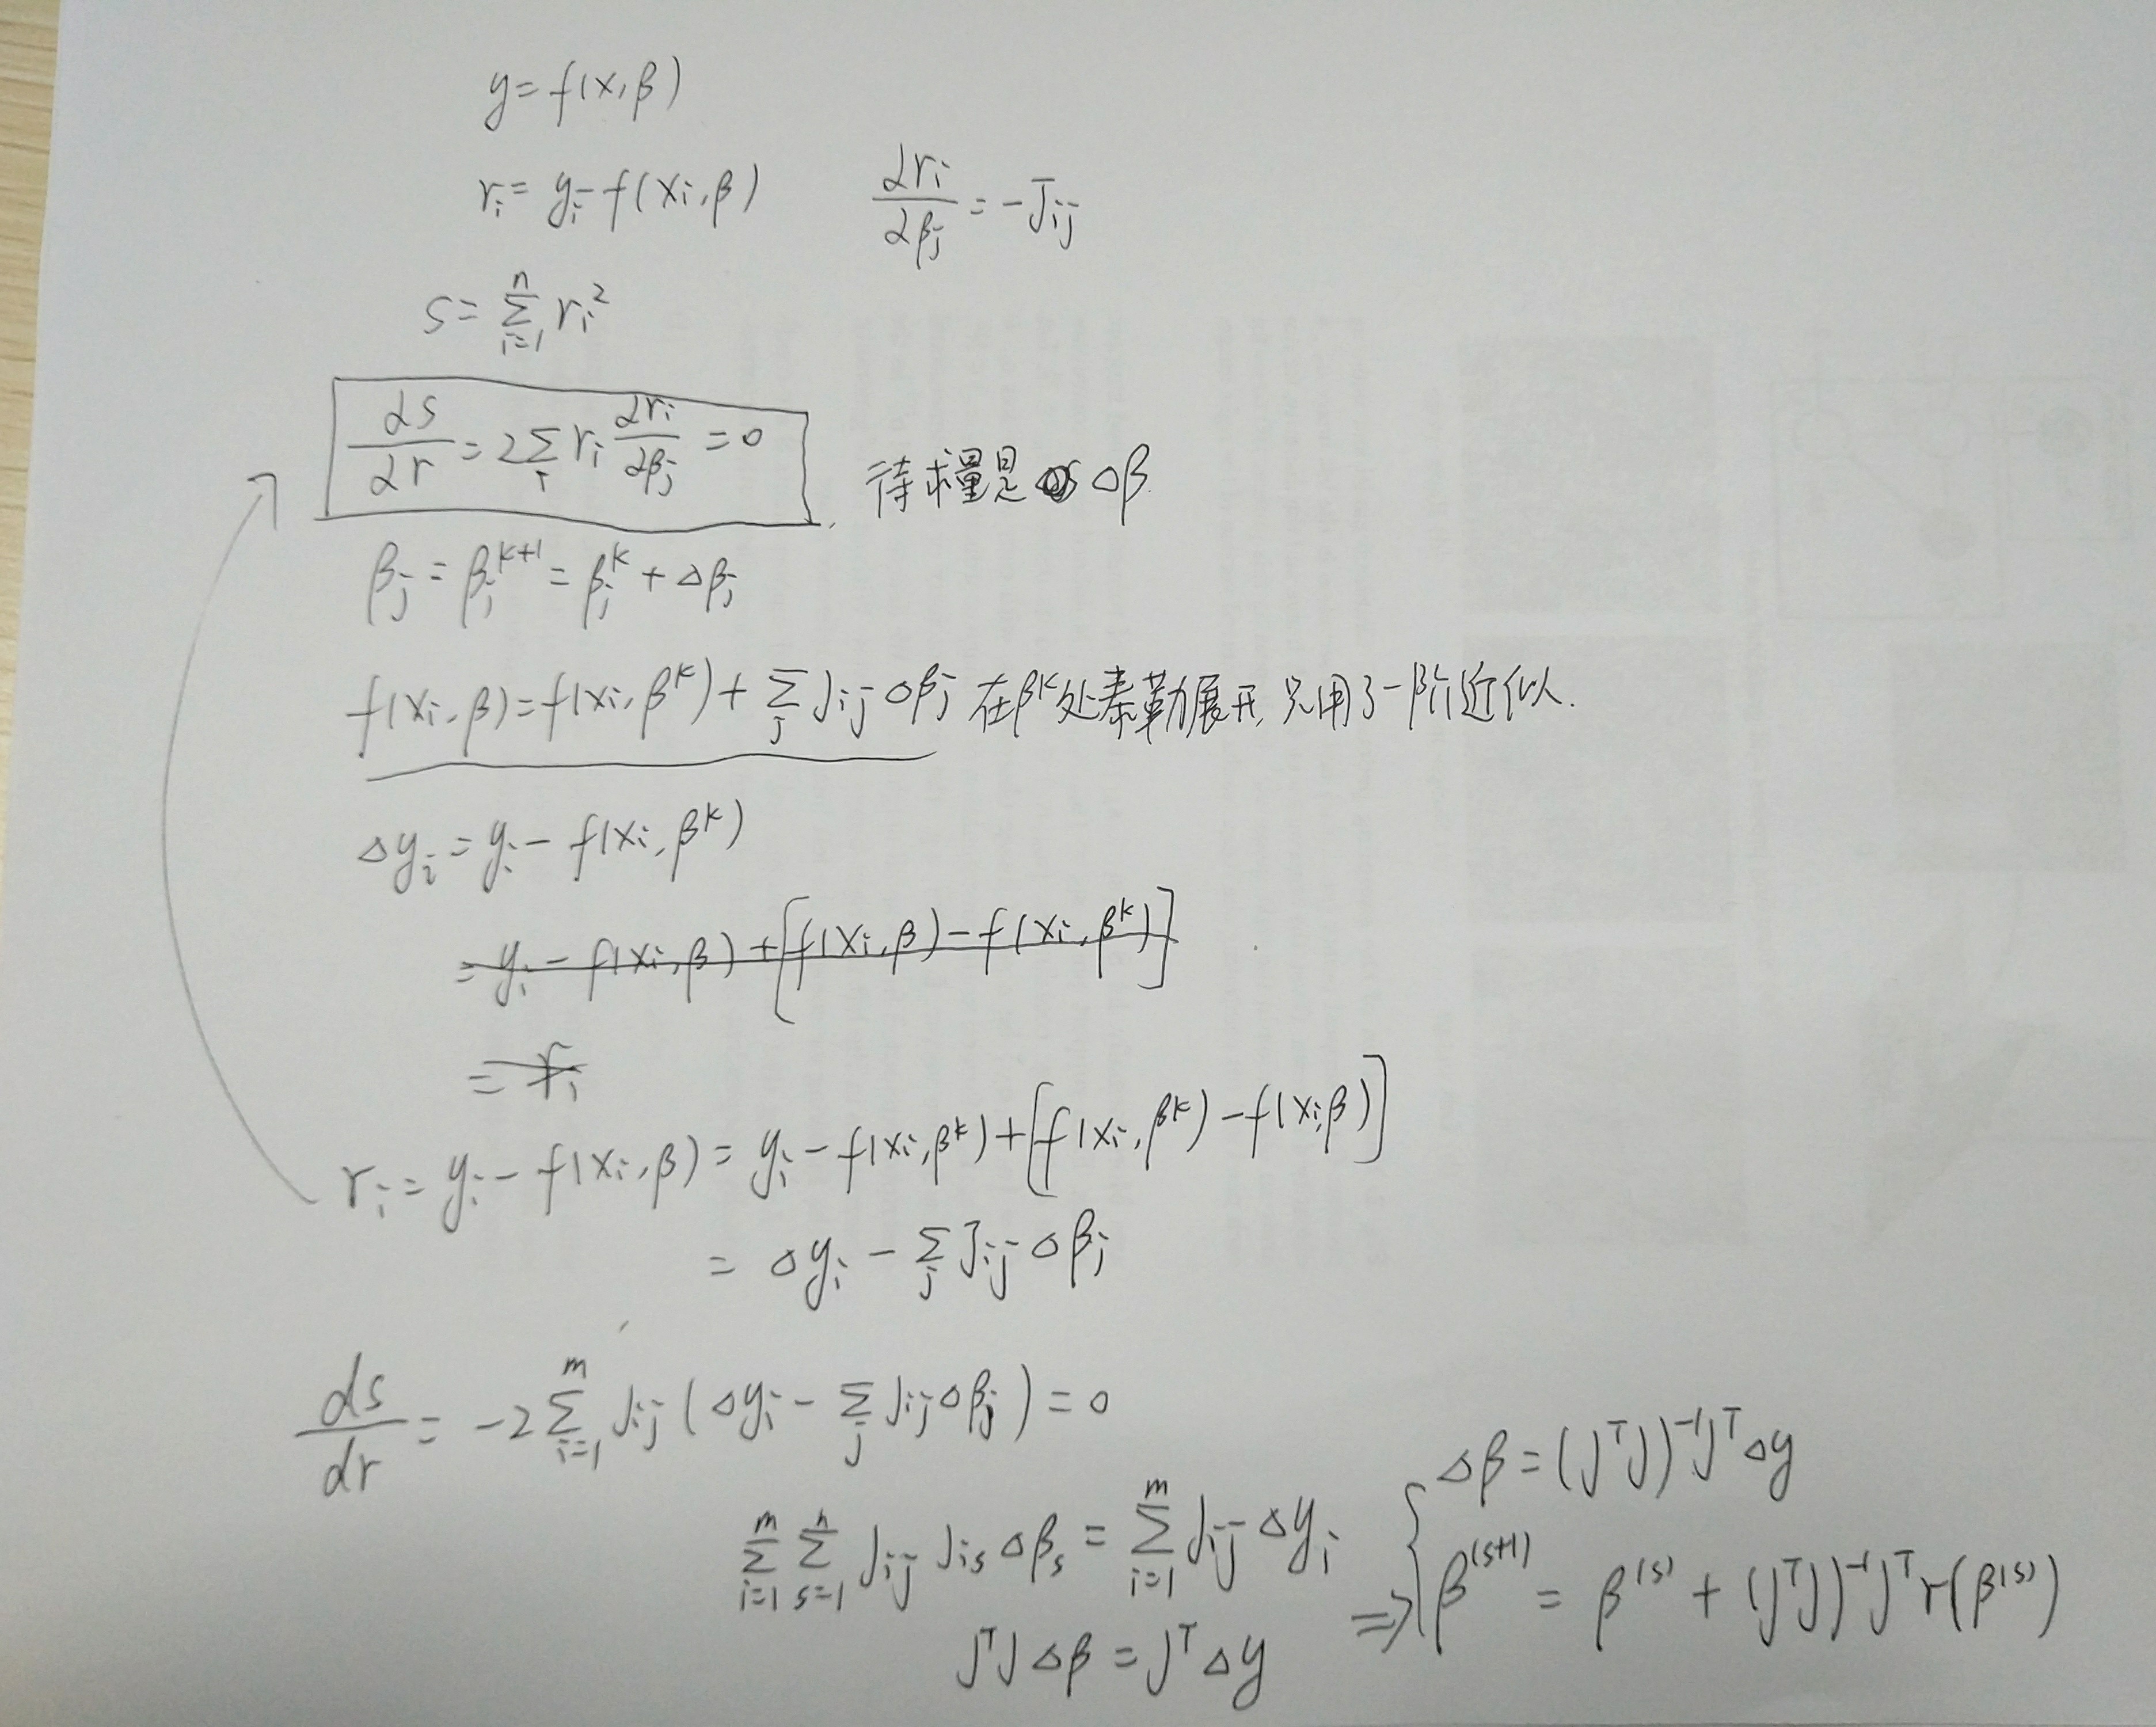 y = f(x, β)
r_i = y_i - f(x_i, β)  ∂r_i/∂β_j = -J_ij
s = ∑_{i=1}^{n} r_i^2
∂s/∂r = 2∑_i r_i ∂r_i/∂β_j = 0  待求量是 Δβ.
β_j = β_j^{k+1} = β_j^k + Δβ_j
f(x_i, β) = f(x_i, β^k) + ∑_j J_ij Δβ_j 在β^k处泰勒展开,只用了一阶近似.
Δy_i = y_i - f(x_i, β^k)
= y_i - f(x_i, β) + [f(x_i, β) - f(x_i, β^k)]
= r_i
r_i = y_i - f(x_i, β) = y_i - f(x_i, β^k) + [f(x_i, β^k) - f(x_i, β)]
= Δy_i - ∑_j J_ij Δβ_j
ds/dr = -2∑_{i=1}^{m} J_ij (Δy_i - ∑_j J_ij Δβ_j) = 0
∑_{i=1}^{m} ∑_{s=1}^{n} J_ij J_is Δβ_s = ∑_{i=1}^{m} J_ij Δy_i
J^T J Δβ = J^T Δy
⇒ { Δβ = (J^T J)^{-1} J^T Δy
β^{(s+1)} = β^{(s)} + (J^T J)^{-1} J^T r(β^{(s)})